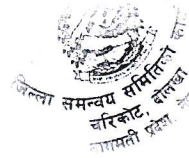 जिल्ला समन्वय समितिको
चरिकोट, दोलखा
बागमती प्रदेश, ने